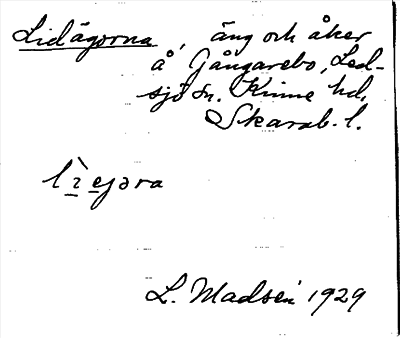 Lidägorna, äng och åker
å Gångarebo, Led-
sjö sn. Kinne hd.
Skarab. l.
L. Madsén 1929